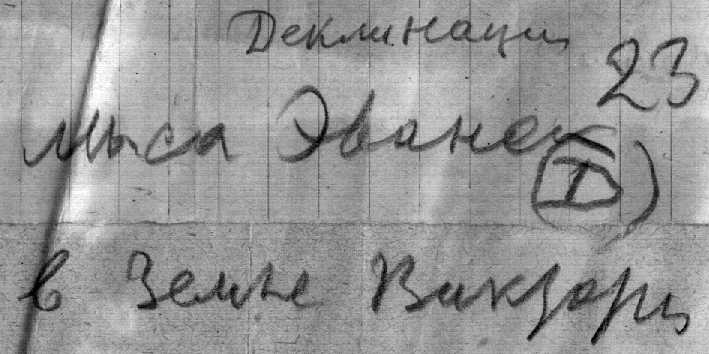 Деклинация
23
мыса Эванс
(D)
в Земле Виктори